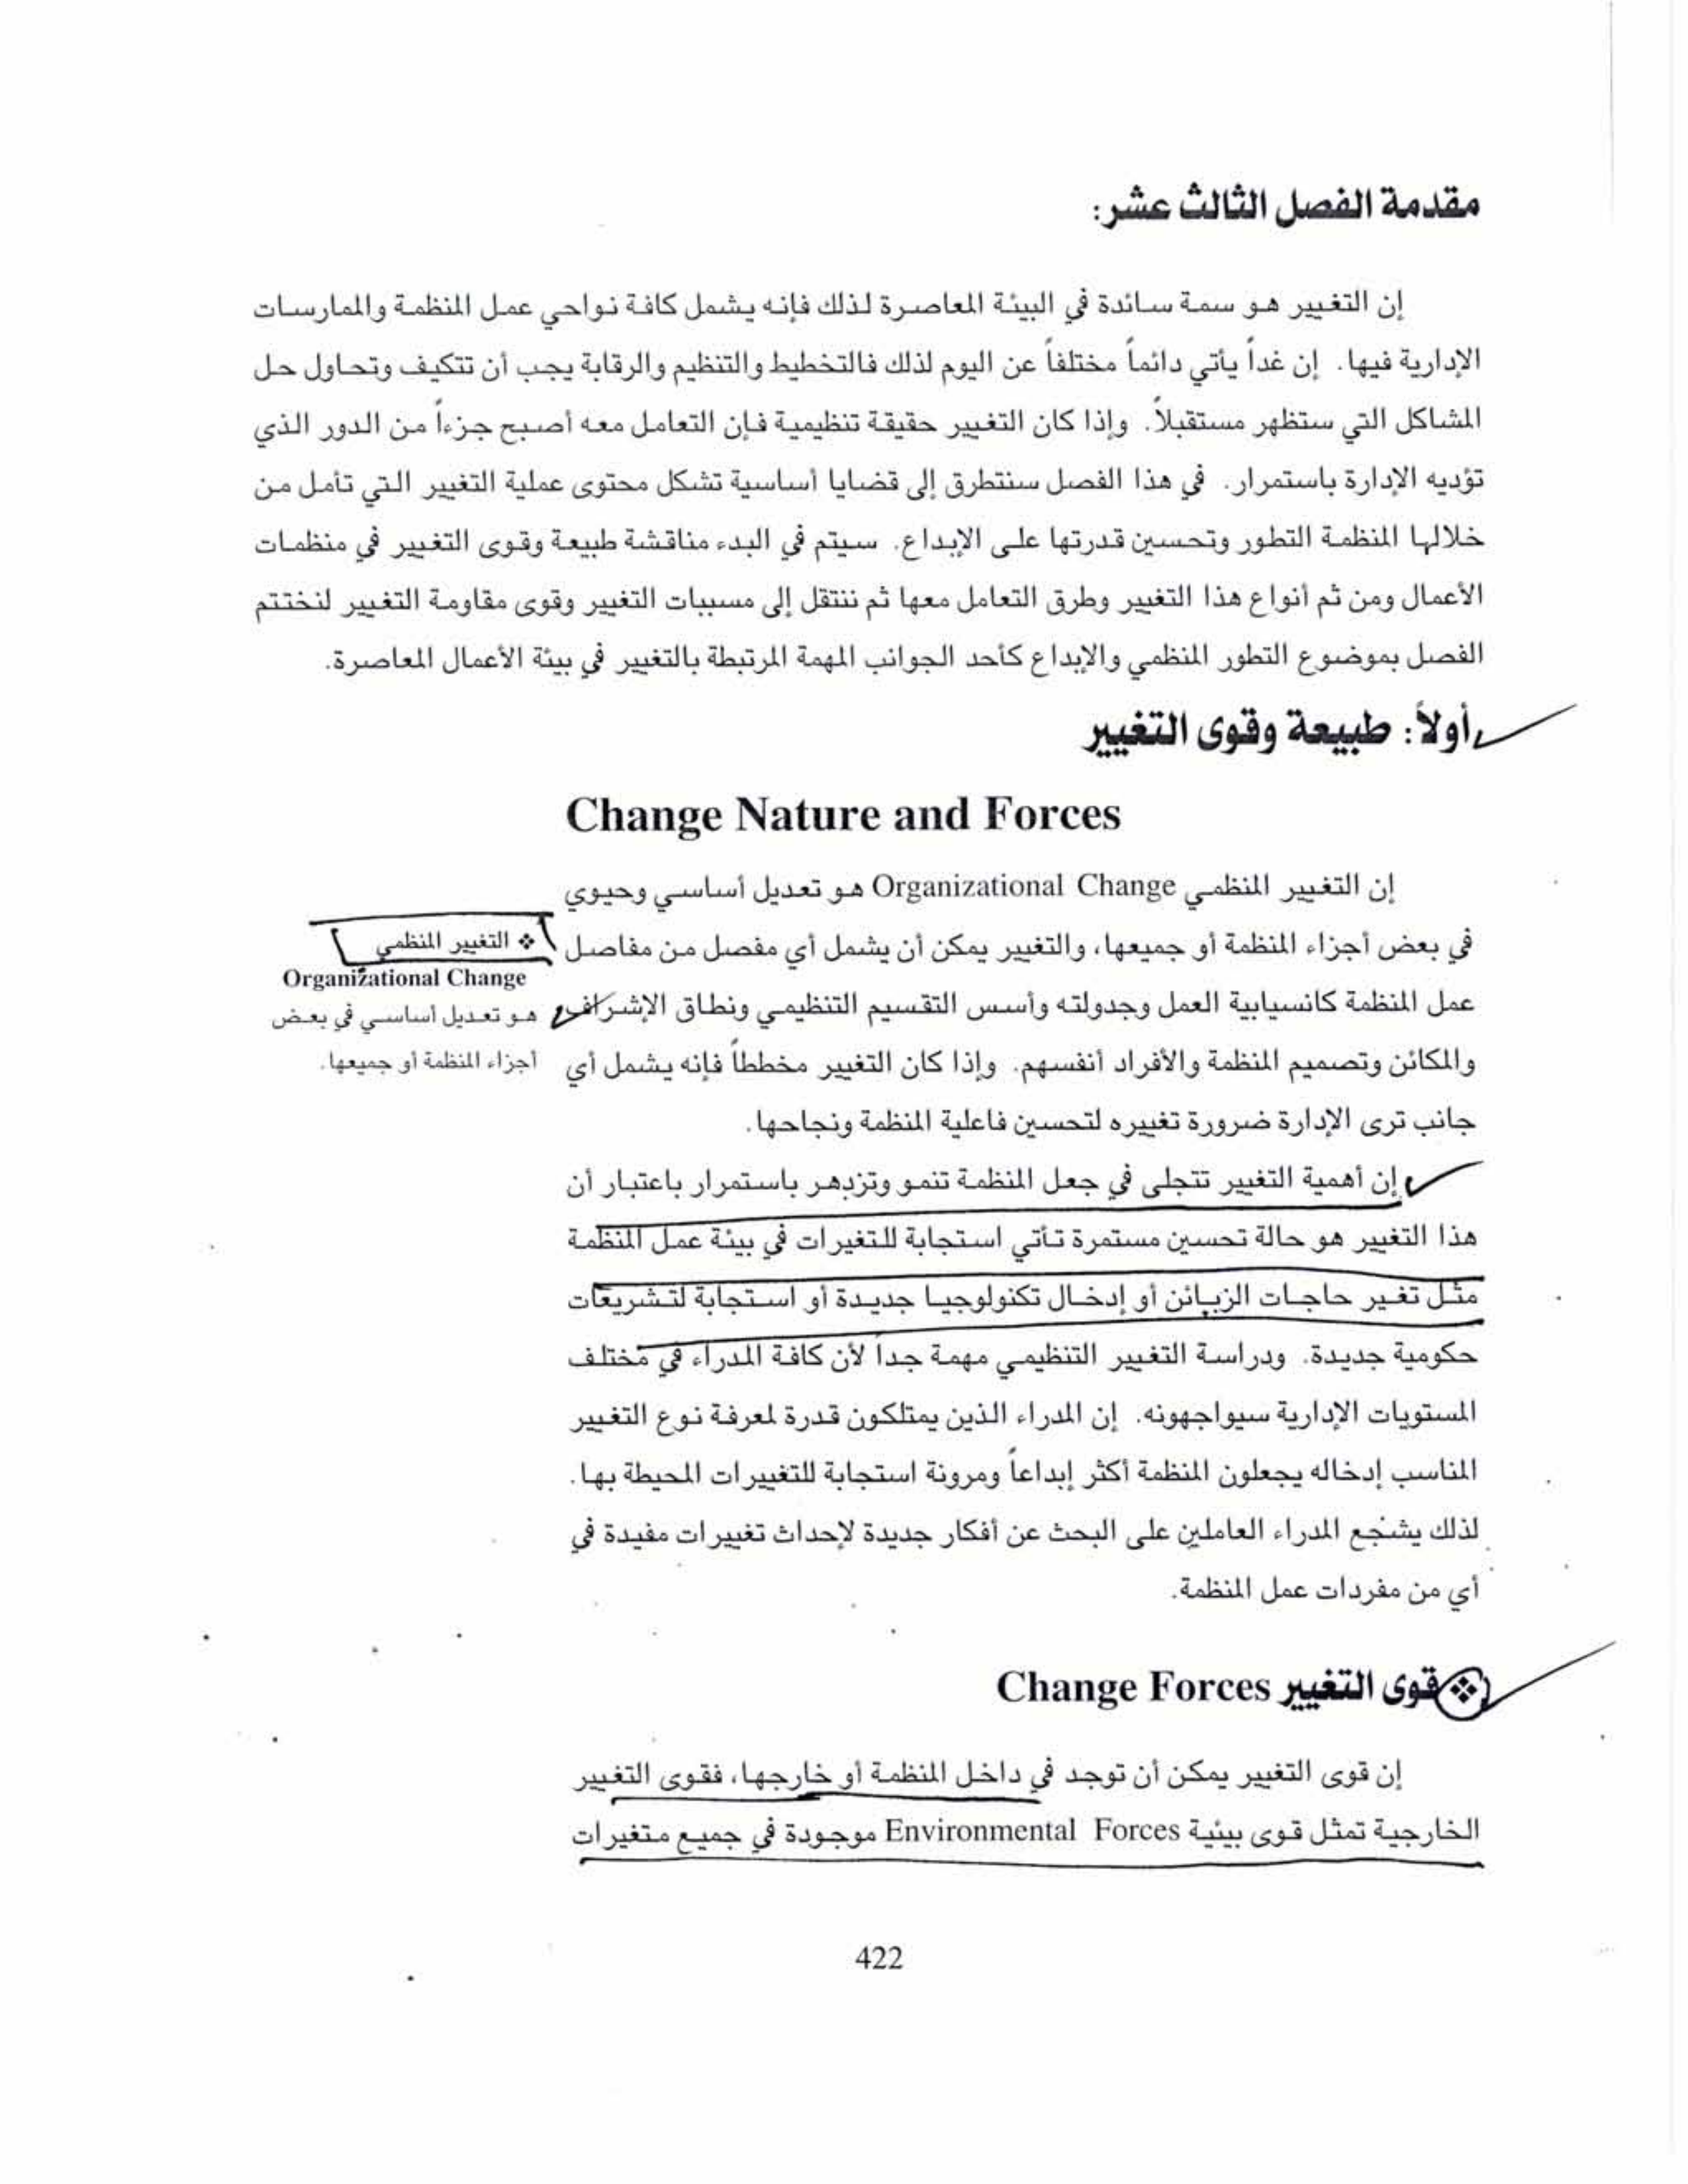 مقدمة الفصل الثالث عشر:
إن التغيير هو سمة سائدة في البيئة المعاصرة لذلك فإنه يشمل كافة نواحي عمل المنظمة والممارسات
الإدارية فيها. إن غداً يأتي دائماً مختلفاً عن اليوم لذلك فالتخطيط والتنظيم والرقابة يجب أن تتكيف وتحاول حل
المشاكل التي ستظهر مستقبلاً. وإذا كان التغيير حقيقة تنظيمية فإن التعامل معه أصبح جزءاً من الدور الذي
تؤديه الإدارة باستمرار. في هذا الفصل سنتطرق إلى قضايا أساسية تشكل محتوى عملية التغيير التي تأمل من
خلالها المنظمة التطور وتحسين قدرتها على الإبداع. سيتم في البدء مناقشة طبيعة وقوى التغيير في منظمات
الأعمال ومن ثم أنواع هذا التغيير وطرق التعامل معها ثم ننتقل إلى مسببات التغيير وقوى مقاومة التغيير لنختتم
الفصل بموضوع التطور المنظمي والإبداع كأحد الجوانب المهمة المرتبطة بالتغيير في بيئة الأعمال المعاصرة.
أولاً: طبيعة وقوى التغيير
Change Nature and Forces
إن التغيير المنظمي Organizational Change هو تعديل أساسي وحيوي
في بعض أجزاء المنظمة أو جميعها، والتغيير يمكن أن يشمل أي مفصل من مفاصل
عمل المنظمة كانسيابية العمل وجدولته وأسس التقسيم التنظيمي ونطاق الإشراف
والمكائن وتصميم المنظمة والأفراد أنفسهم. وإذا كان التغيير مخططاً فإنه يشمل أي
جانب ترى الإدارة ضرورة تغييره لتحسين فاعلية المنظمة ونجاحها.
❖ التغيير المنظمي
Organizational Change
هو تعديل أساسي في بعض
أجزاء المنظمة أو جميعها.
إن أهمية التغيير تتجلى في جعل المنظمة تنمو وتزدهر باستمرار باعتبار أن
هذا التغيير هو حالة تحسين مستمرة تأتي استجابة للتغيرات في بيئة عمل المنظمة
مثل تغير حاجات الزبائن أو إدخال تكنولوجيا جديدة أو استجابة لتشريعات
حكومية جديدة. ودراسة التغيير التنظيمي مهمة جداً لأن كافة المدراء في مختلف
المستويات الإدارية سيواجهونه. إن المدراء الذين يمتلكون قدرة لمعرفة نوع التغيير
المناسب إدخاله يجعلون المنظمة أكثر إبداعاً ومرونة استجابة للتغييرات المحيطة بها.
لذلك يشجع المدراء العاملين على البحث عن أفكار جديدة لإحداث تغييرات مفيدة في
أي من مفردات عمل المنظمة.
❖ قوى التغيير Change Forces
إن قوى التغيير يمكن أن توجد في داخل المنظمة أو خارجها، فقوى التغيير
الخارجية تمثل قوى بيئية Environmental Forces موجودة في جميع متغيرات
422